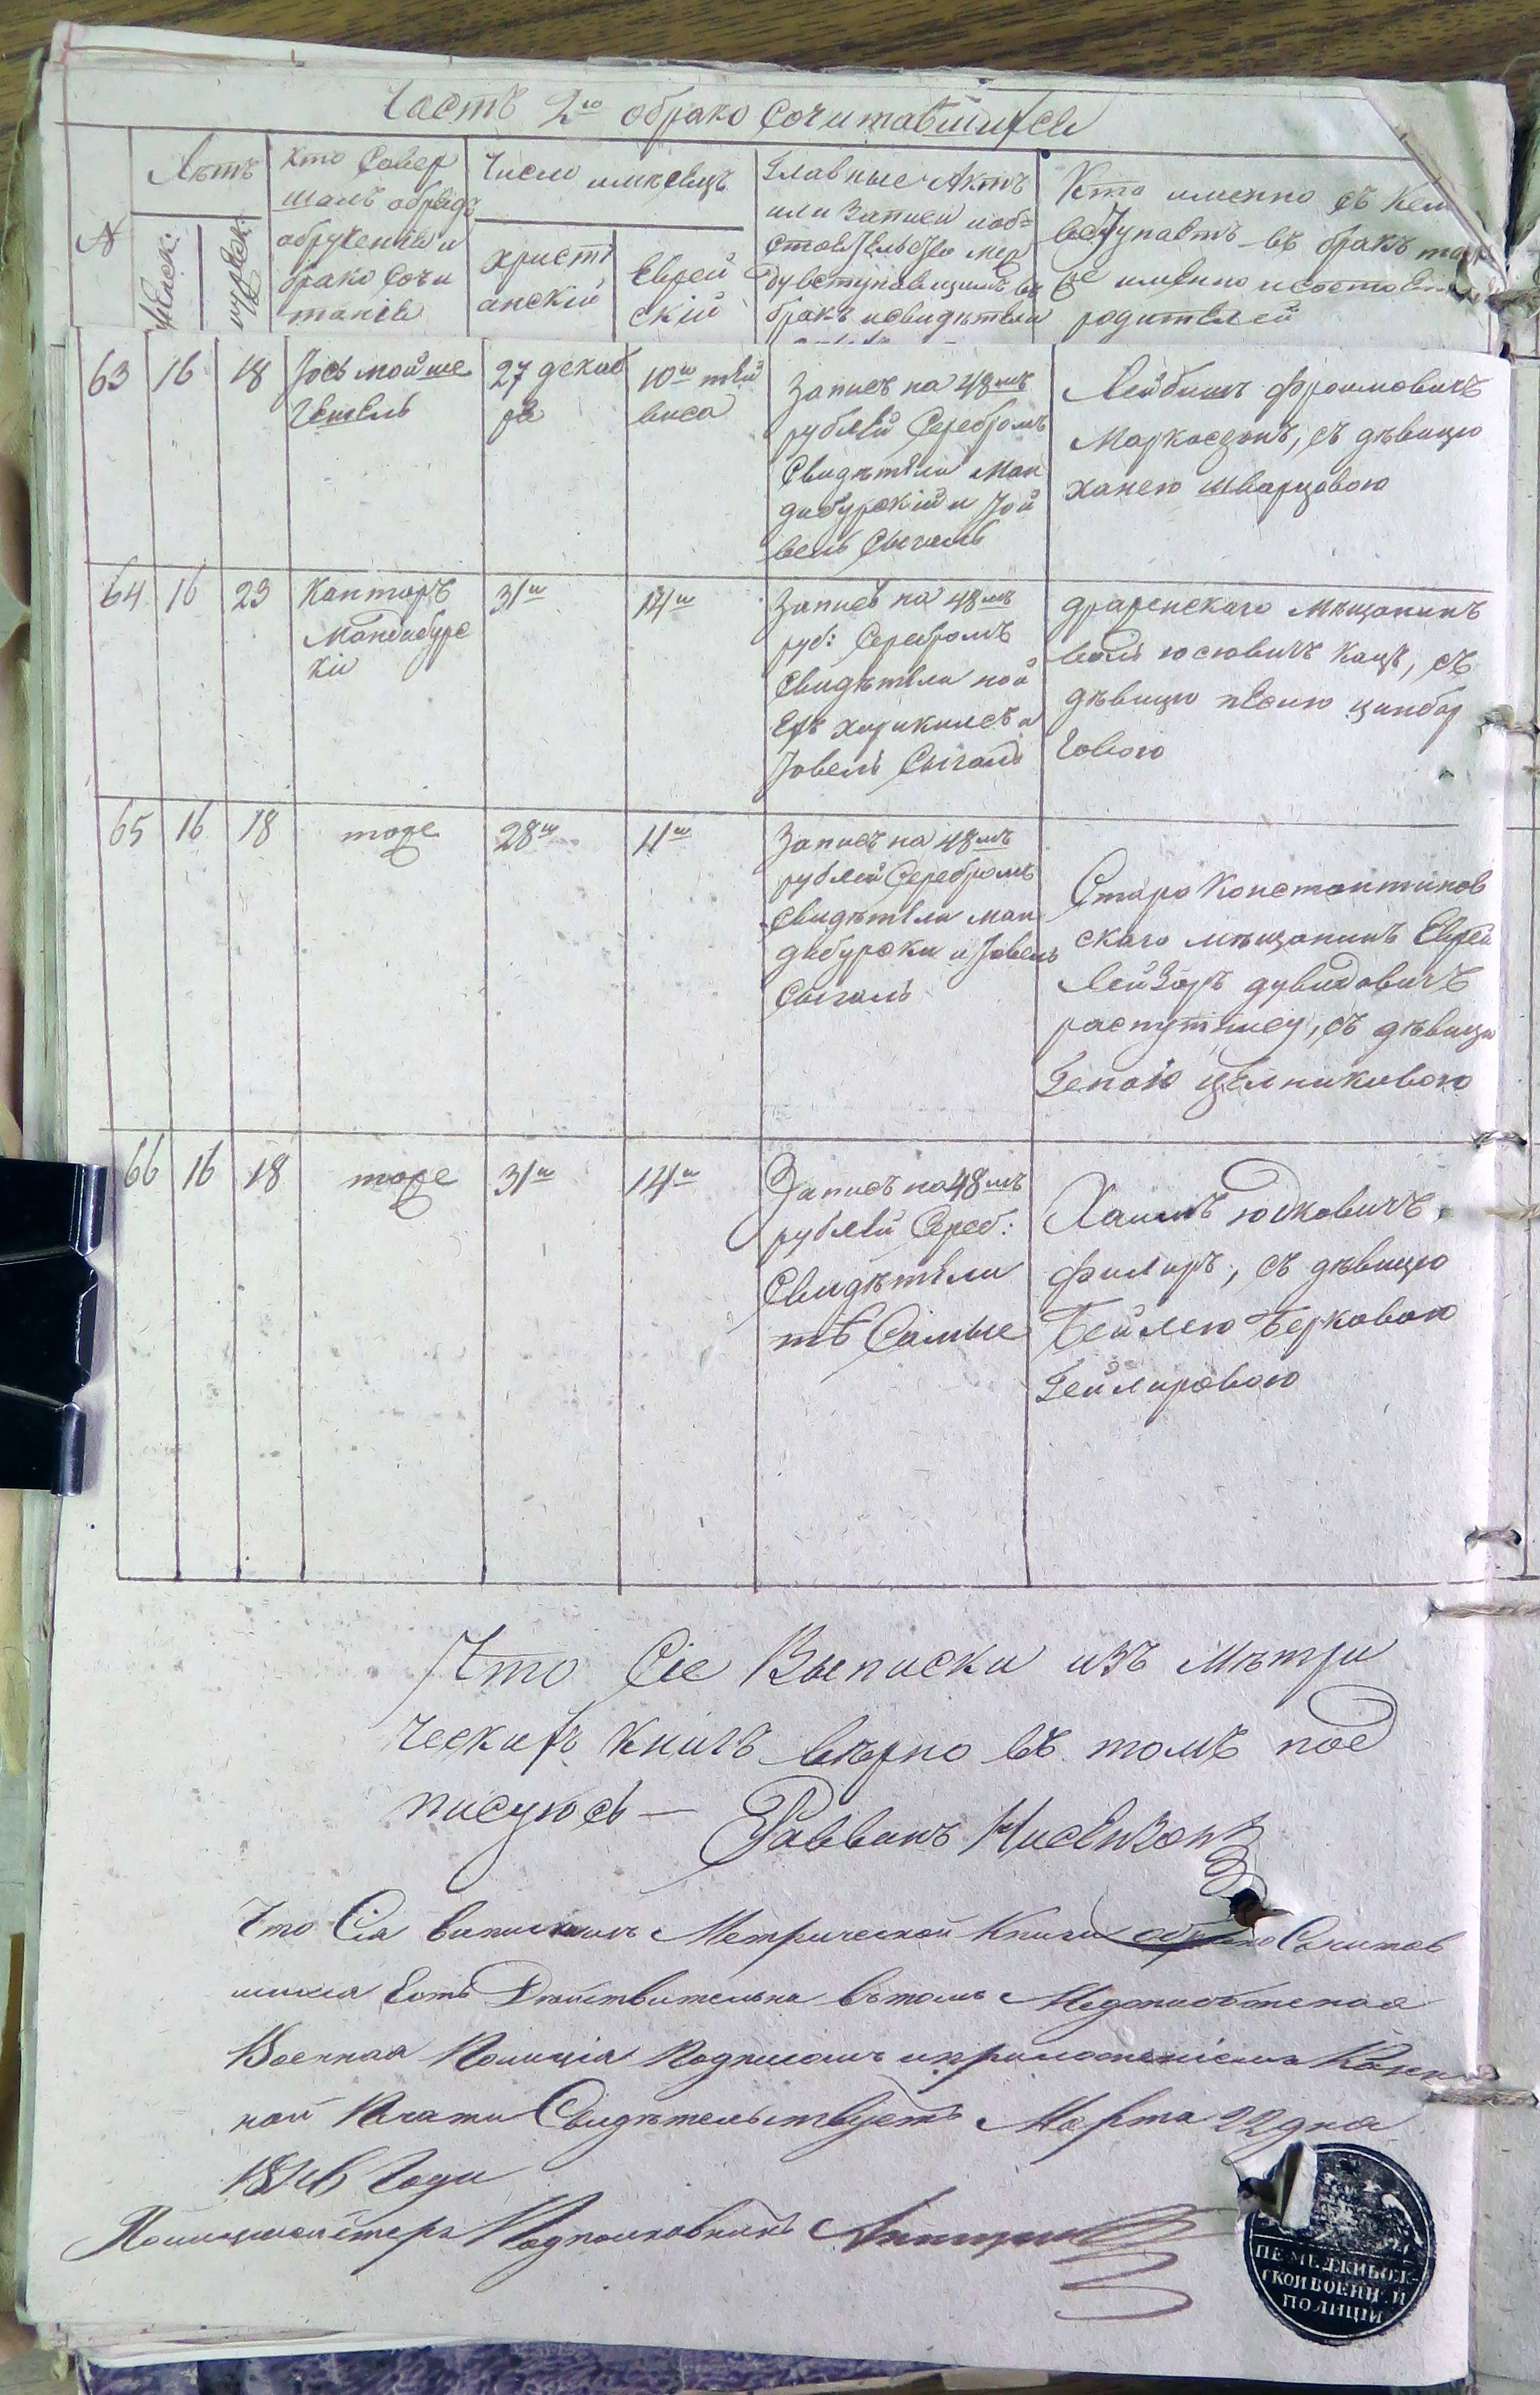 Часть 2ю о брако Сочитавшихся
№
Лѣтъ
Женск:
мужеск:
Кто Совер
шалъ обрядъ
обрученія и
брако Сочи
танія
Число и мѣсяцъ
Христі
анскій
Еврей
скій
Главные Актъ
или Записи и об-
стоятельство меж
ду вступавщими въ
бракъ и свидѣтели
Кто именно съ Кем
вступаетъ въ бракъ
именно и состо
родителей
63
16
18
Іось мойше
Гетель
27 декаб
ря
10ш тей
виса
Записъ на 48мъ
рублей Серебромъ
Свидѣтели Ман
дибурскій и Іой
вель Сыгаль
Лейбишъ Фроимовичъ
Маркосзонъ, съ дѣвицю
ханею шварцовою
64
16
23
Канторъ
Мандибурс
кіи
31ш
14ш
Записъ на 48мъ
руб: Серебромъ
Свидѣтели
и
Іовель Сыгаль
мѣщанинъ
Волъ юсювичъ Кацъ, съ
дѣвицю песию цимбар
говою
65
16
18
тоже
28ш
11ш
Записъ на 48мъ
рублей Серебромъ
Свидѣтели ман
дибурски и Іовель
Сыгаль
Старо Константинов
скаго мѣщанинъ Еврей
Лейзоръ дувидовичъ
съ дѣвицю
Генаю Целниковою
66
16
18
тоже
31ш
14ш
Записъ на 48мъ
рублей Сереб:
Свидѣтели
тѣ Самые
Хаимъ юдковичъ
Филиръ, съ дѣвицю
Бейлею Берковою
Гейлировою
Что Сіе Выписки изъ мѣтри
ческихъ книгъ вѣрно въ томъ под
писуюсь — Раввинъ Нисензонъ
Что Сія Метрической Книги о брако Сочитав
шихся Есть Действительна въ томъ Меджибожская
Военная Полиція Подписомъ и приложеніемъ Казен
ной Печати Свидѣтельствуетъ Марта 22 дня
1846 Года
Полицмейстеръ Подполковникъ
МЕДЖИБОЖ-
СКОЙ ВОЕНН.Й
ПОЛИЦІИ